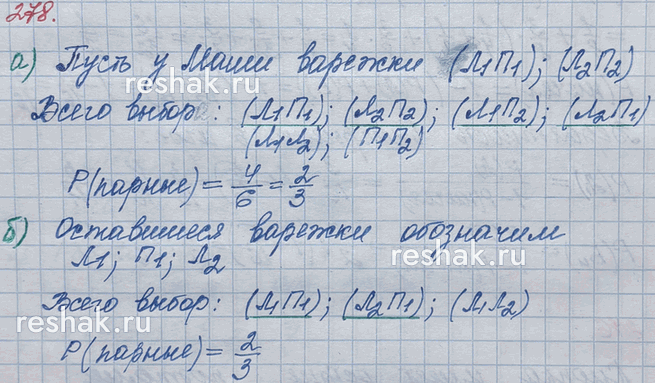 278.
а) Пусть у Маши варежки (Л1П1); (Л2П2)
Всего выбор: (Л1П1); (Л2П2); (Л1П2); (Л2П1)
(Л1Л2); (П1П2)
P(парные) = 4/6 = 2/3
б) Оставшиеся варежки обозначим
Л1; П1; Л2
Всего выбор: (Л1П1); (Л2П1); (Л1Л2)
P(парные) = 2/3
reshak.ru
reshak.ru
reshak.ru
reshak.ru
reshak.ru